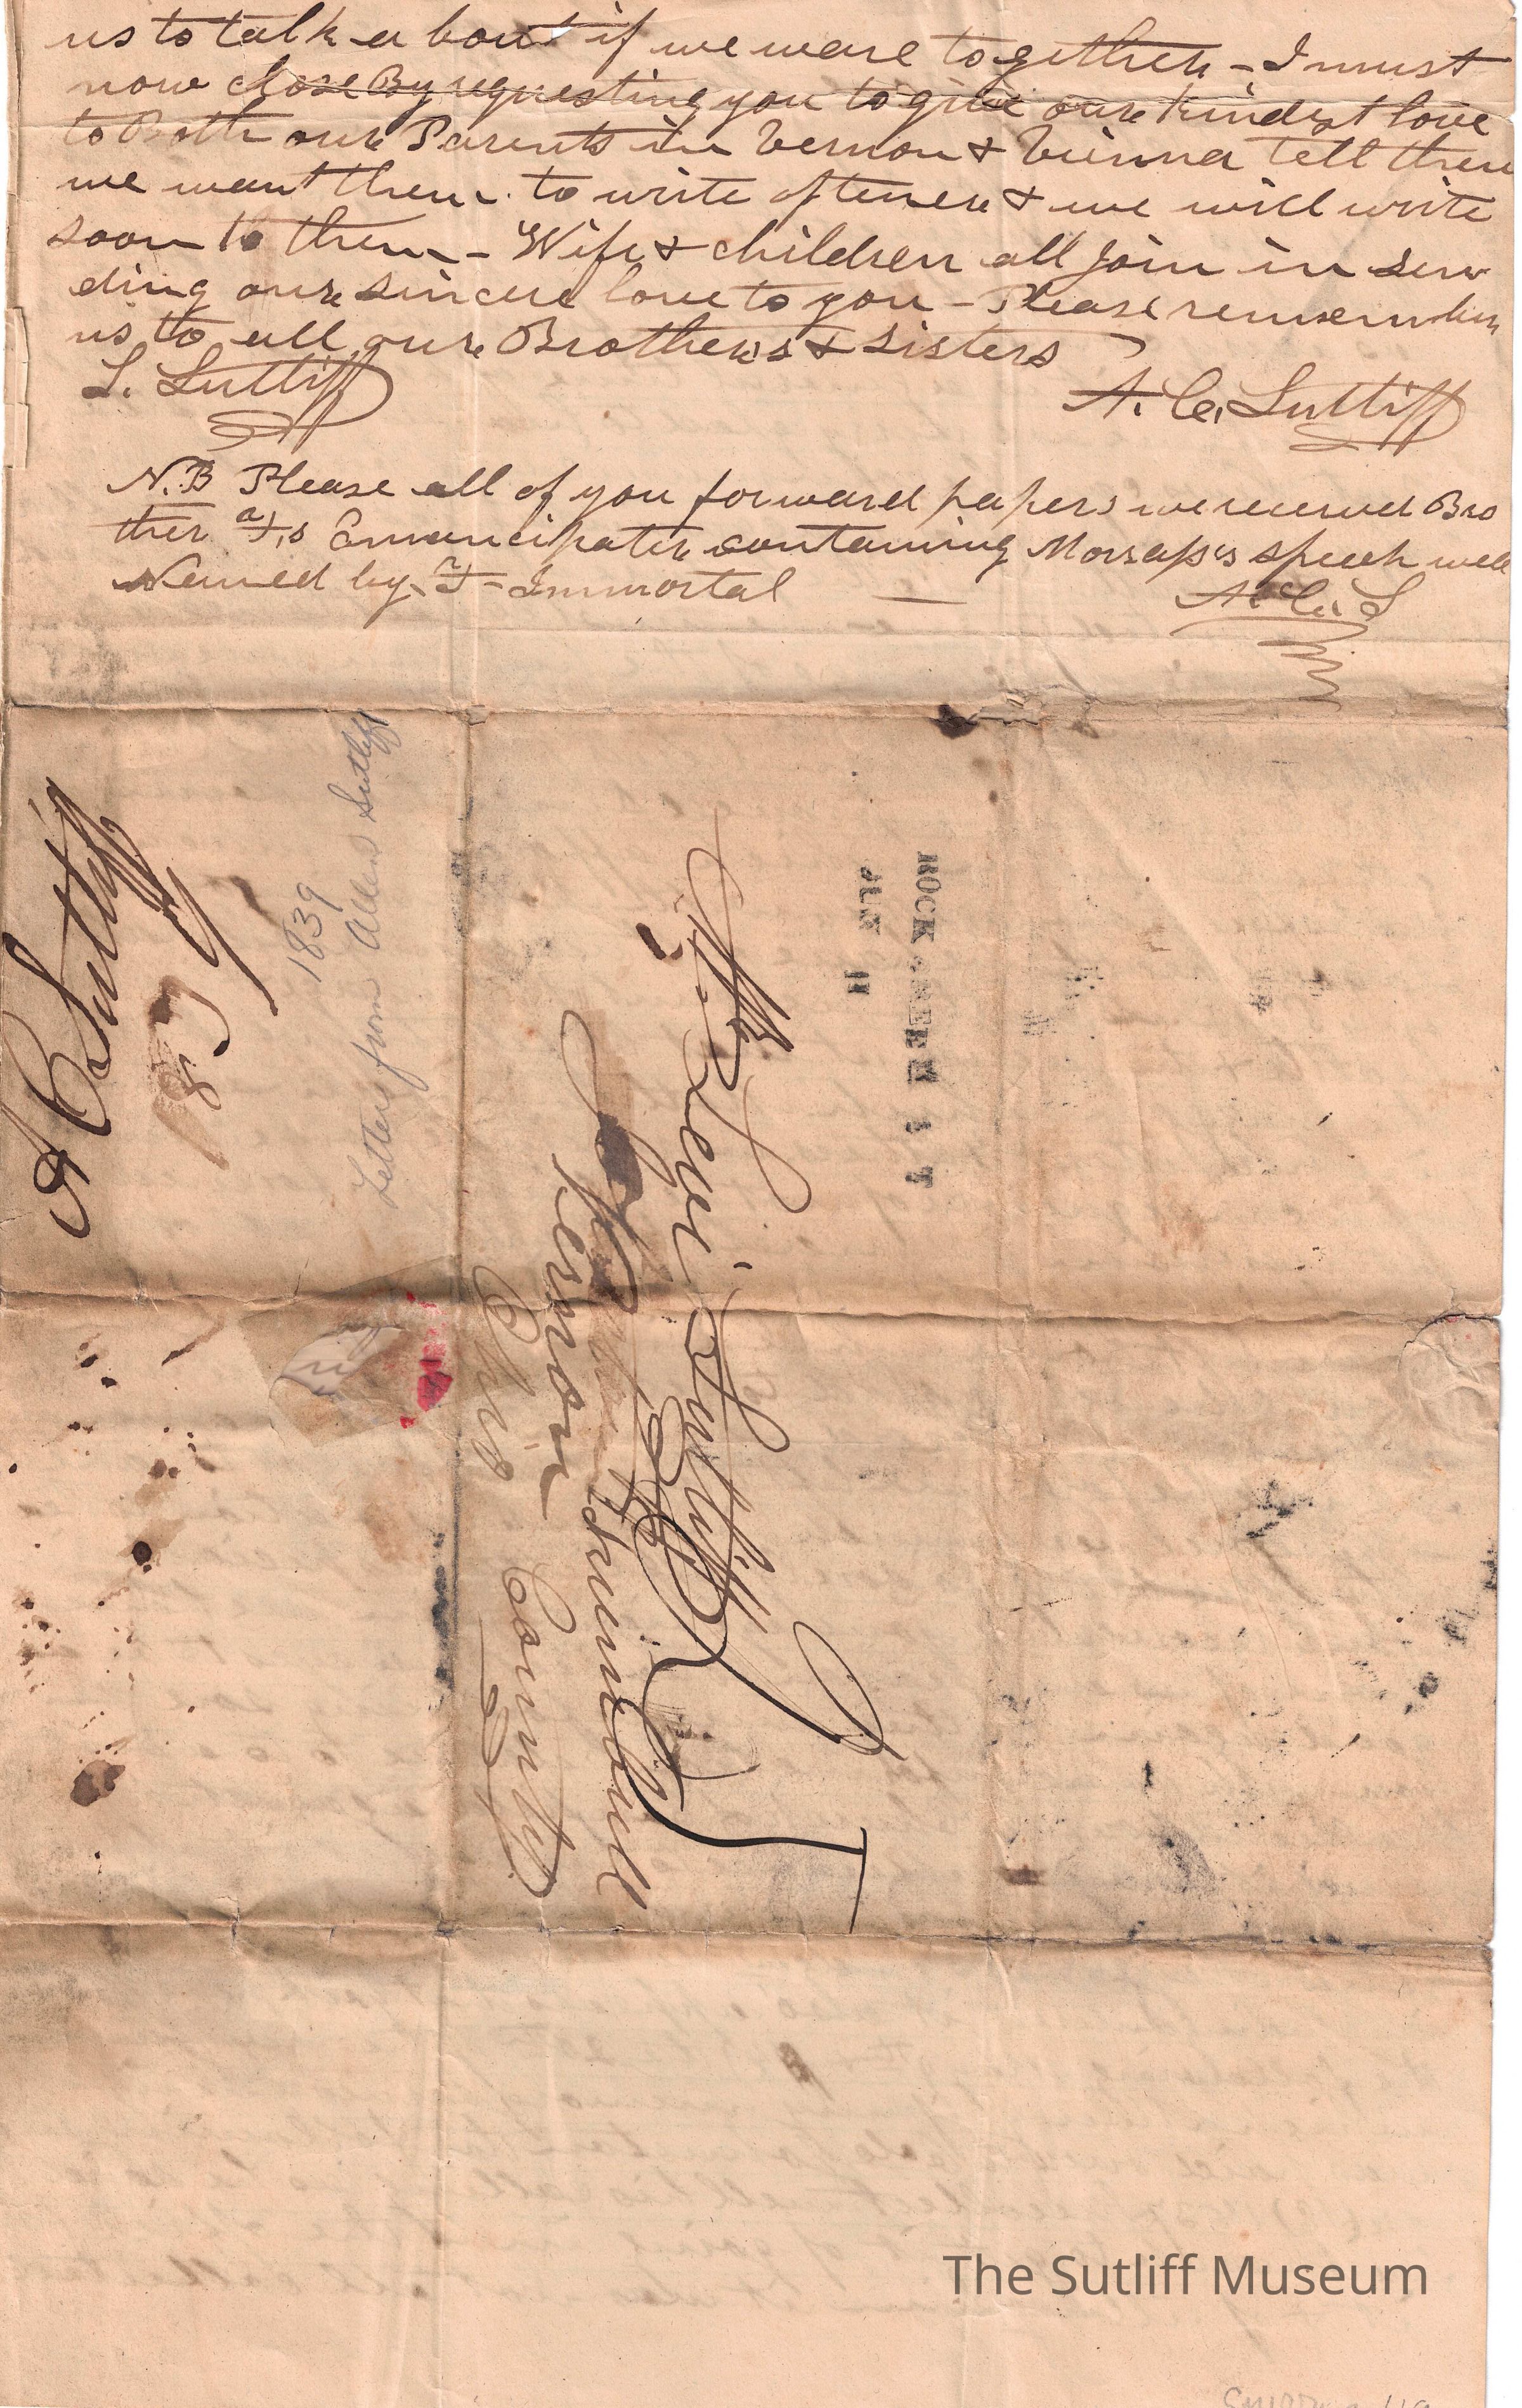 us to talk a bout if we ware together - I must
now close By requesting you to give our kindest love
to Both our Parents in Vernon & Vienna tell them
we want them to write oftener & we will write
soon to them - Wife & children all Join in sen
ding our sincere love to you - Please remember
us to all our Brothers & Sisters
L. Sutliff
A. C. Sutliff
N.B Please all of you forward papers we received Bro
ther Emancipator containing Morris's speech well
Named by Immortal
A. C. S
A C Sutliff
1839
Letter from Allen Sutliff
ROCK GREEN
JUN 11
Mr. Levi Sutliff
Vernon Trumbull
Ohio County
The Sutliff Museum